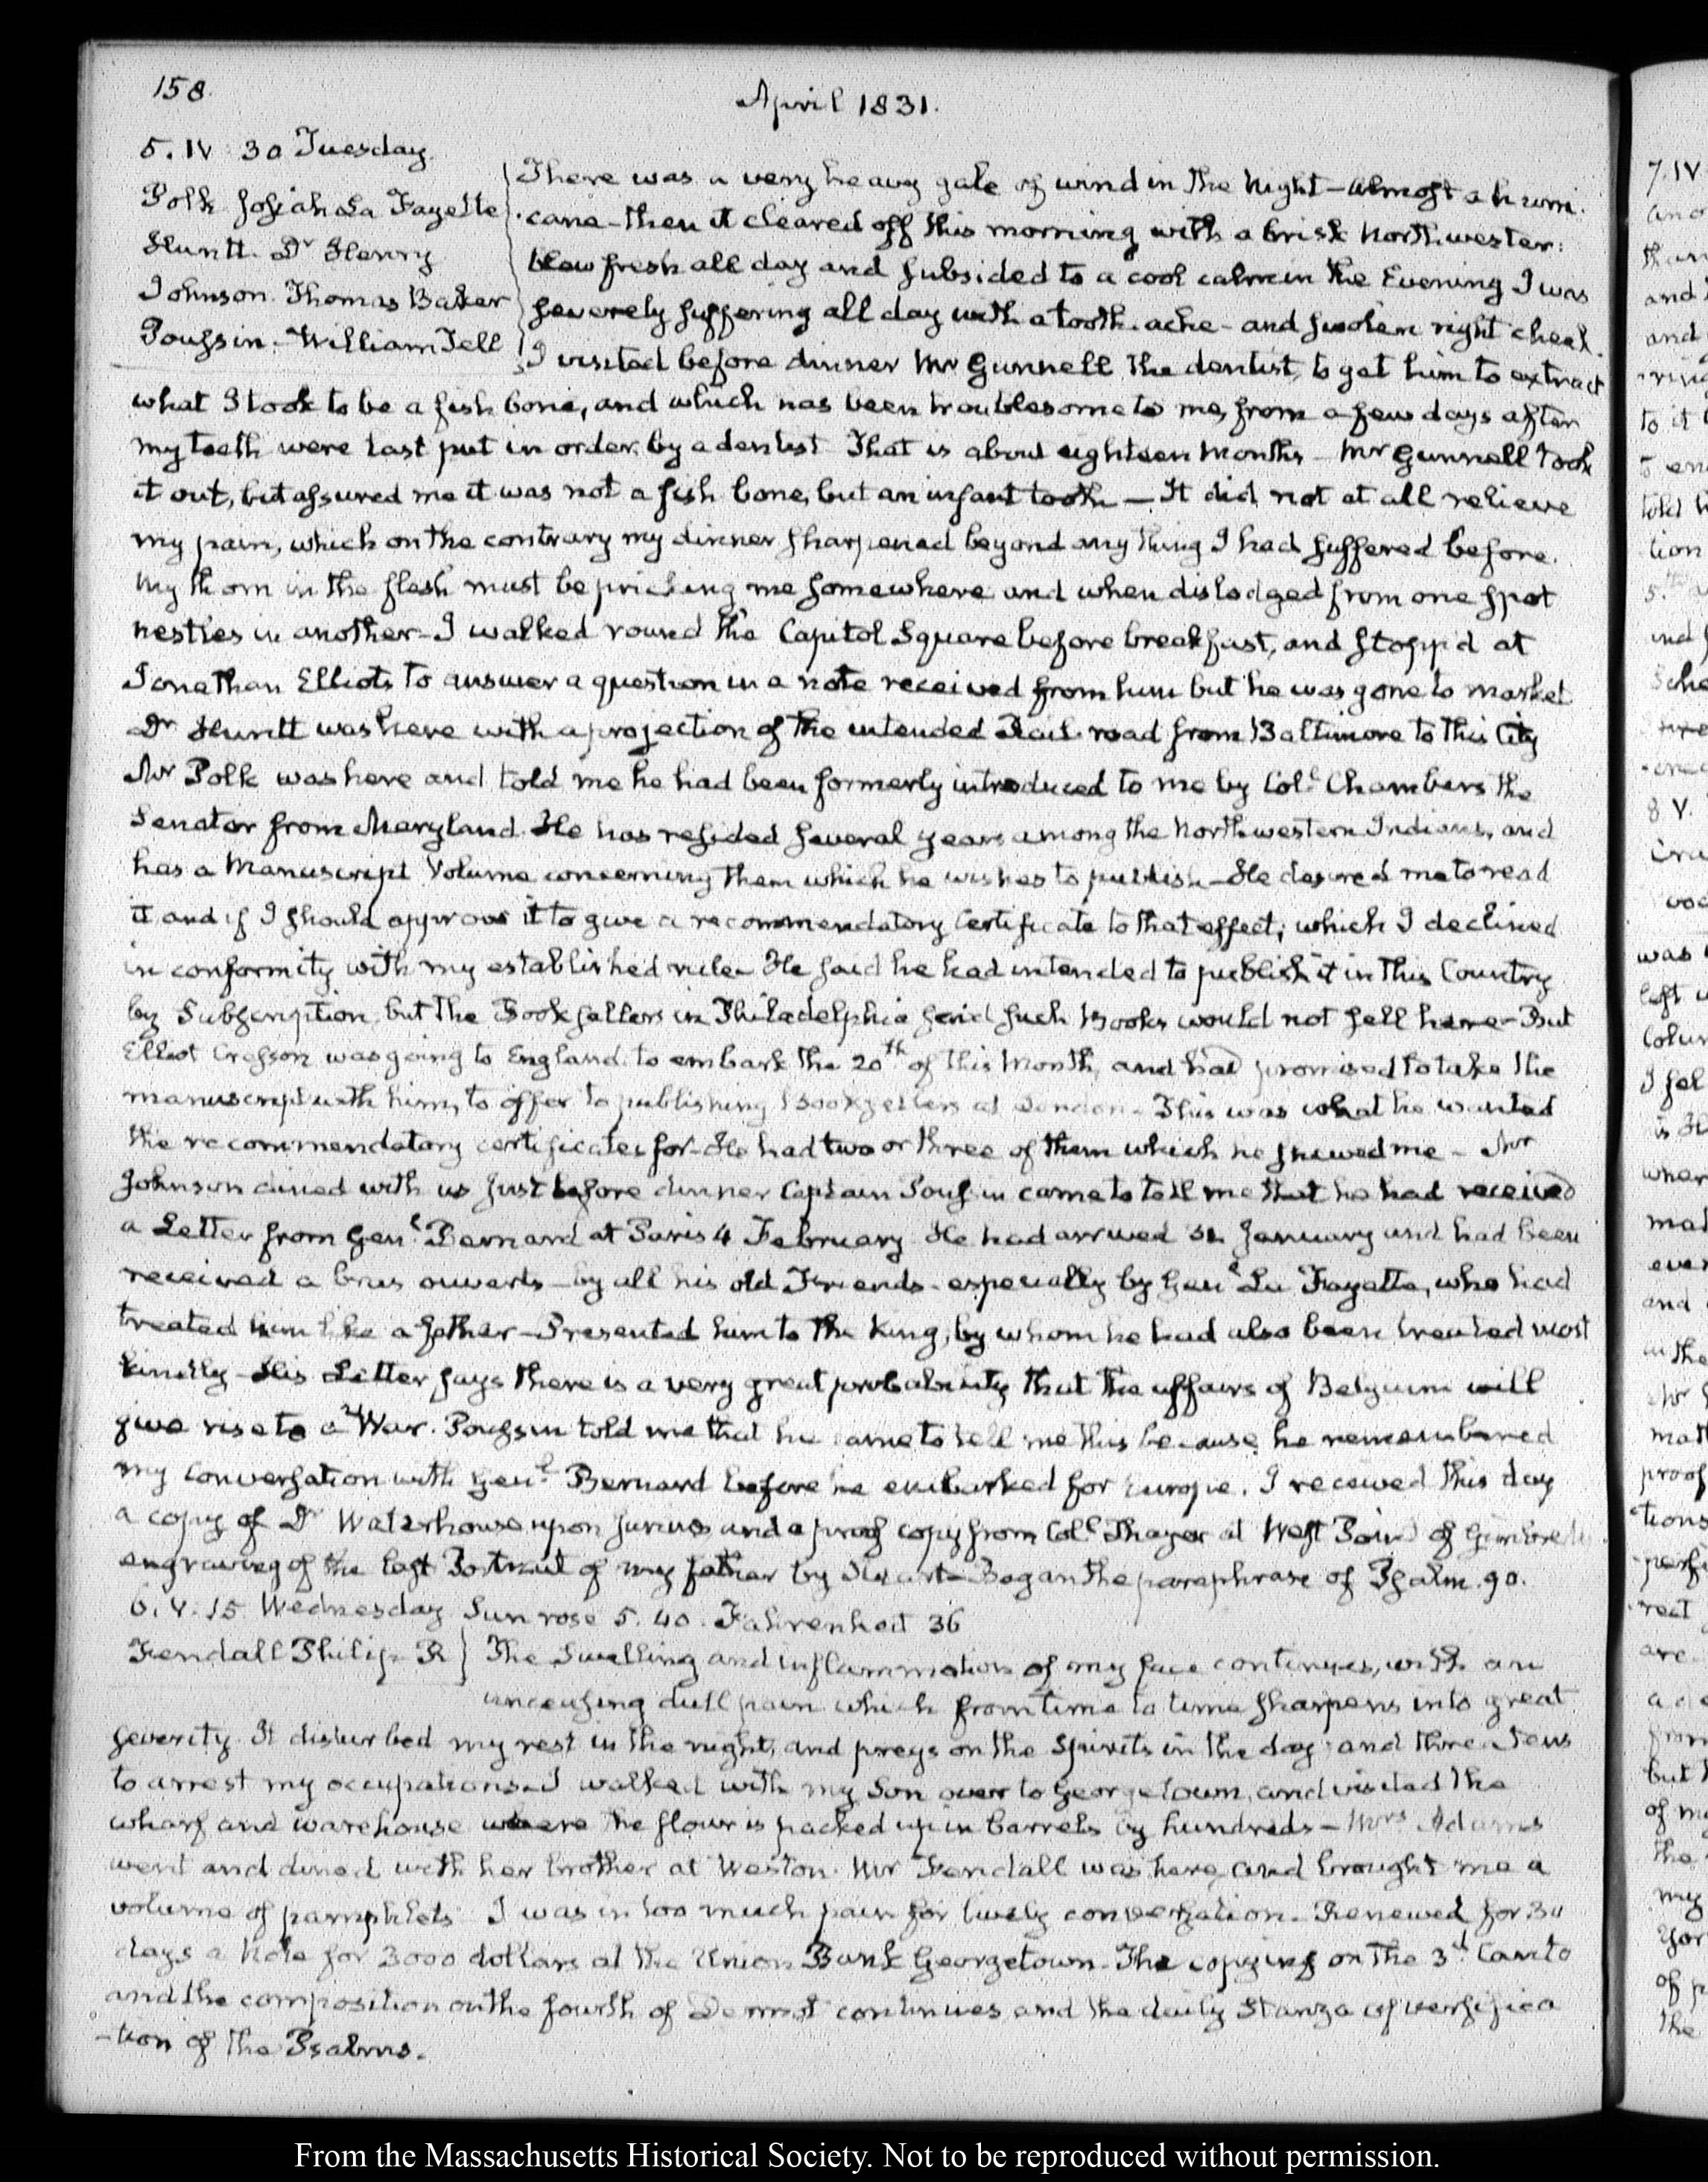 158.
April 1831.
5. IV 30 Tuesday.
Polk Josiah La Fayette
Huntt. Dr Henry
Johnson. Thomas Baker
Poussin. William Tell
There was a very heavy gale of wind in the Night - almost a hurri-
cane - then it cleared off this morning with a brisk Northwester:
blew fresh all day and subsided to a cool calm in the Evening I was
severely suffering all day with a tooth-ache - and swolen right cheek.
I visited before dinner Mr Gunnell the dentist, to get him to extract
what I took to be a fish bone, and which has been troublesome to me, from a few days after
my teeth were last put in order by a dentist That is about eighteen Months - Mr Gunnell took
it out, but assured me it was not a fish bone, but an infant tooth - It did not at all relieve
my pain, which on the contrary my dinner sharpened beyond any thing I had suffered before.
My thorn in the flesh must be pricking me somewhere and when dislodged from one spot
nestles in another - I walked round the Capitol Square before breakfast, and stopp'd at
Jonathan Elliot's to answer a question in a note received from him but he was gone to market
Dr Huntt was here with a projection of the intended Rail-road from Baltimore to this City
Mr Polk was here and told me he had been formerly introduced to me by Coll Chambers the
Senator from Maryland. He has resided several years among the Northwestern Indians, and
has a Manuscript Volume concerning them which he wishes to publish - He desired me to read
it and if I should approve it to give a recommendatory Certificate to that effect; which I declined
in conformity with my established rule - He said he had intended to publish it in this Country
by Subscription, but the Booksellers in Philadelphia said such Books would not sell here - But
Elliot Cresson was going to England to embark the 20th of this Month, and had promised to take the
manuscript with him, to offer to publishing Booksellers at London - This was what he wanted
the recommendatory certificates for - He had two or three of them which he shewed me - Mr
Johnson dined with us just before dinner Captain Poussin came to tell me that he had received
a Letter from Genl. Bernard at Paris 4 February He had arrived 31 January and had been
received a bras ouverts - by all his old Friends - especially by Genl La Fayette, who had
treated him like a father - Presented him to the King, by whom he had also been treated most
kindly - His Letter says there is a very great probability that the affairs of Belgium will
give rise to a War. Poussin told me that he came to tell me this because he remembered
my Conversation with Genl Bernard before he embarked for Europe. I received this day
a copy of Dr Waterhouse upon Junius and a proof copy from Coll Thayer at West Point of
engraving of the last Portrait of my father by Stuart - Began the paraphrase of Psalm. 90.
6. V. 15 Wednesday Sun rose 5. 40. Fahrenheit 36
Fendall Philip R
The Swelling and inflammation of my face continues, with an
unceasing dull pain which from time to time sharpens into great
severity. It disturbed my rest in the night, and preys on the Spirits in the day: and threatens
to arrest my occupations - I walked with my Son over to Georgetown, and visited the
wharf and warehouse where the flour is packed up in barrels by hundreds - Mrs Adams
went and dined with her brother at Weston. Mr Fendall was here, and brought me a
volume of pamphlets I was in too much pain for lively conversation - Renewed for 30
days a Note for 3000 dollars at the Union Bank Georgetown - The copying on the 3d. Canto
and the composition on the fourth of Dermot continues and the daily Stanza of versifica
-tion of the Psalms.
From the Massachusetts Historical Society. Not to be reproduced without permission.